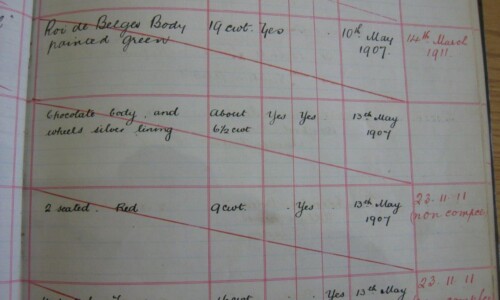 Roi de Belges Body 19 cwt. Yes 10th May 14th March
painted green 1907. 1911
Chocolate body and About Yes Yes 13th May
wheels silver lining 6½ cwt 1907
2 seated. Red 9 cwt. Yes 13th May 23.11.11
1907 (non compce)
23.11.11
Yes 13th May